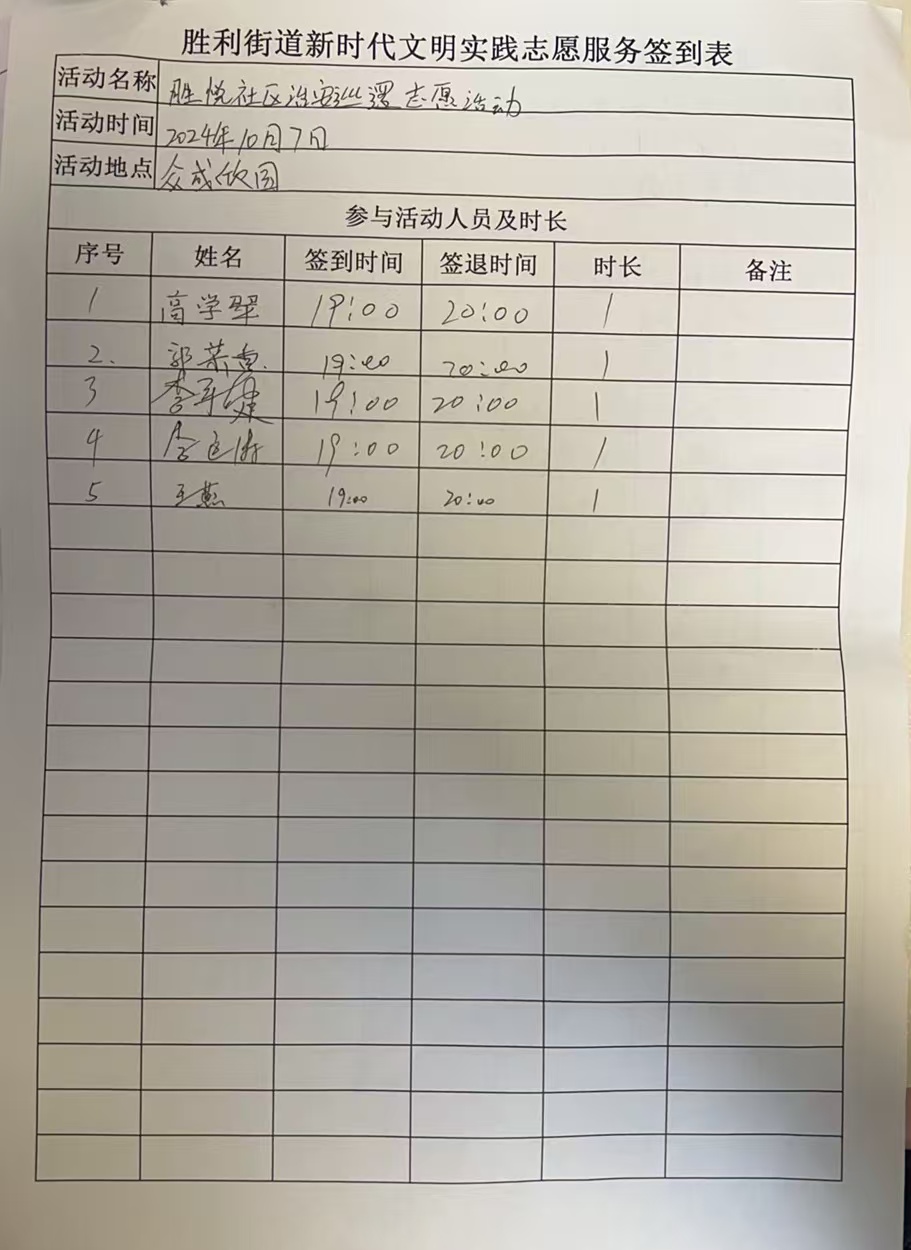 胜利街道新时代文明实践志愿服务签到表
活动名称 胜悦社区治安巡逻志愿活动
活动时间 2024年10月7日
活动地点 众成欣园
参与活动人员及时长
序号 姓名 签到时间 签退时间 时长 备注
1 高学翠 19:00 20:00 1
2. 郭荣惠 19:00 20:00 1
3 李 19:00 20:00 1
4 李 19:00 20:00 1
5 王燕 19:00 20:00 1